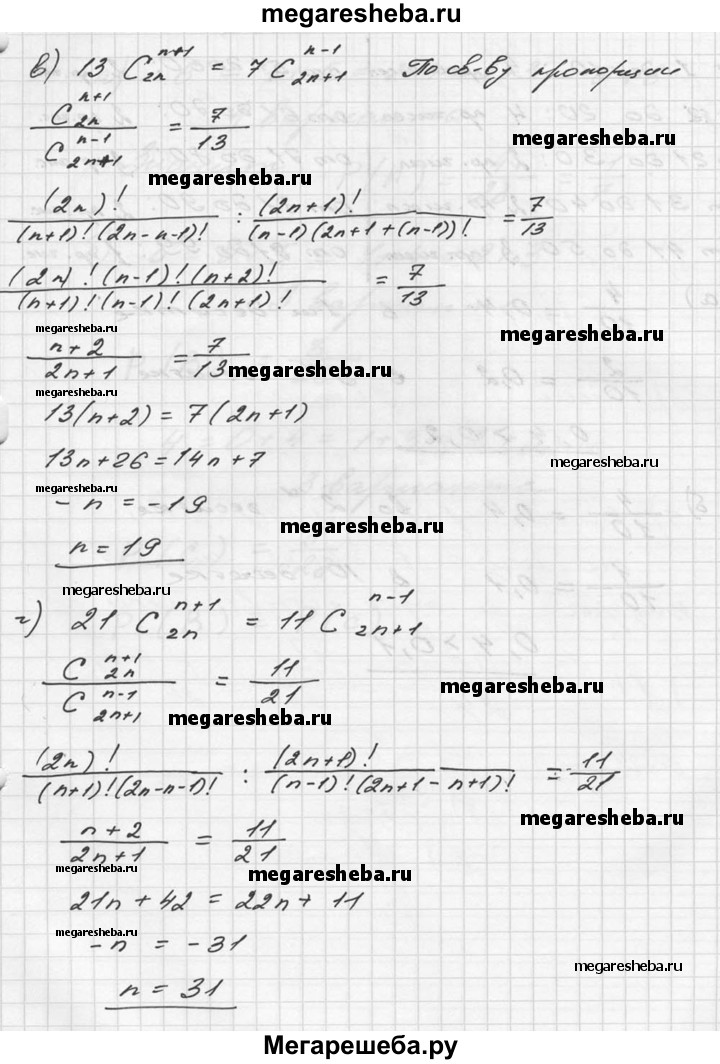 megaresheba.ru
в) 13 C_{2n}^{n+1} = 7 C_{2n+1}^{n-1} По св-ву пропорции
\frac{C_{2n}^{n+1}}{C_{2n+1}^{n-1}} = \frac{7}{13}
megaresheba.ru
megaresheba.ru
\frac{(2n)!}{(n+1)!(2n-n-1)!} : \frac{(2n+1)!}{(n-1)(2n+1+(n-1))!} = \frac{7}{13}
\frac{(2n)!(n-1)!(n+2)!}{(n+1)!(n-1)!(2n+1)!} = \frac{7}{13}
megaresheba.ru
megaresheba.ru
\frac{n+2}{2n+1} = \frac{7}{13}
megaresheba.ru
megaresheba.ru
13(n+2) = 7(2n+1)
13n+26=14n+7
megaresheba.ru
-n = -19
megaresheba.ru
megaresheba.ru
n=19
megaresheba.ru
г) 21 C_{2n}^{n+1} = 11 C_{2n+1}^{n-1}
\frac{C_{2n}^{n+1}}{C_{2n+1}^{n-1}} = \frac{11}{21}
megaresheba.ru
megaresheba.ru
\frac{(2n)!}{(n+1)!(2n-n-1)!} : \frac{(2n+1)!}{(n-1)!(2n+1-n+1)!} = \frac{11}{21}
megaresheba.ru
\frac{n+2}{2n+1} = \frac{11}{21}
megaresheba.ru
megaresheba.ru
21n+42=22n+11
megaresheba.ru
-n = -31
megaresheba.ru
n = 31
Мегарешеба.ру